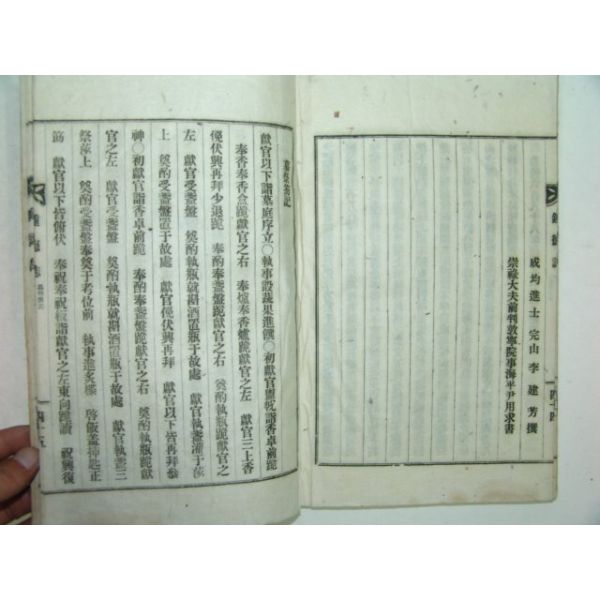 成均進士完山李建芳撰
崇祿大夫前判敦寧院事海平尹用求書
墓祭笏記
獻官以下詣墓庭序立○執事設蔬果進饌○初獻官盥帨詣香卓前跪
奉香奉香盒跪獻官之右 奉爐奉香爐跪獻官之左 獻官三上香
俛伏興再拜少退跪 奉酌奉盞盤跪獻官之右 奠酌執瓶跪獻官之
左 獻官受盞盤 奠酌執瓶就斟酒置瓶于故處 獻官執盞灌于
上 奠酌受盞盤置于故處 獻官俛伏興再拜 獻官以下皆再拜參
神○初獻官詣香卓前跪 奉酌奉盞盤跪獻官之右 奠酌執瓶跪獻
官之左 獻官受盞盤 奠酌執瓶就斟酒置瓶于故處 獻官執盞三
祭 上 奠酌受盞盤奉奠于考位前 執事進炙 啓飯盖揷匙正
筯 獻官以下皆俯伏 奉祝奉祝板詣獻官之左東向跪讀 祝興復
四十五